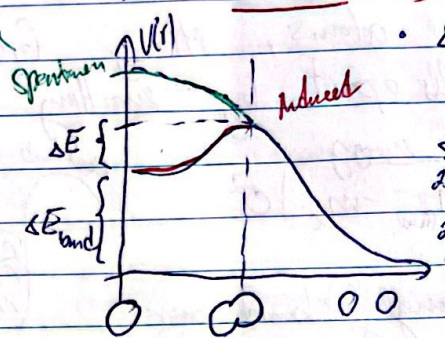 V(r)
Spontaneu
Induced
ΔE
ΔE band